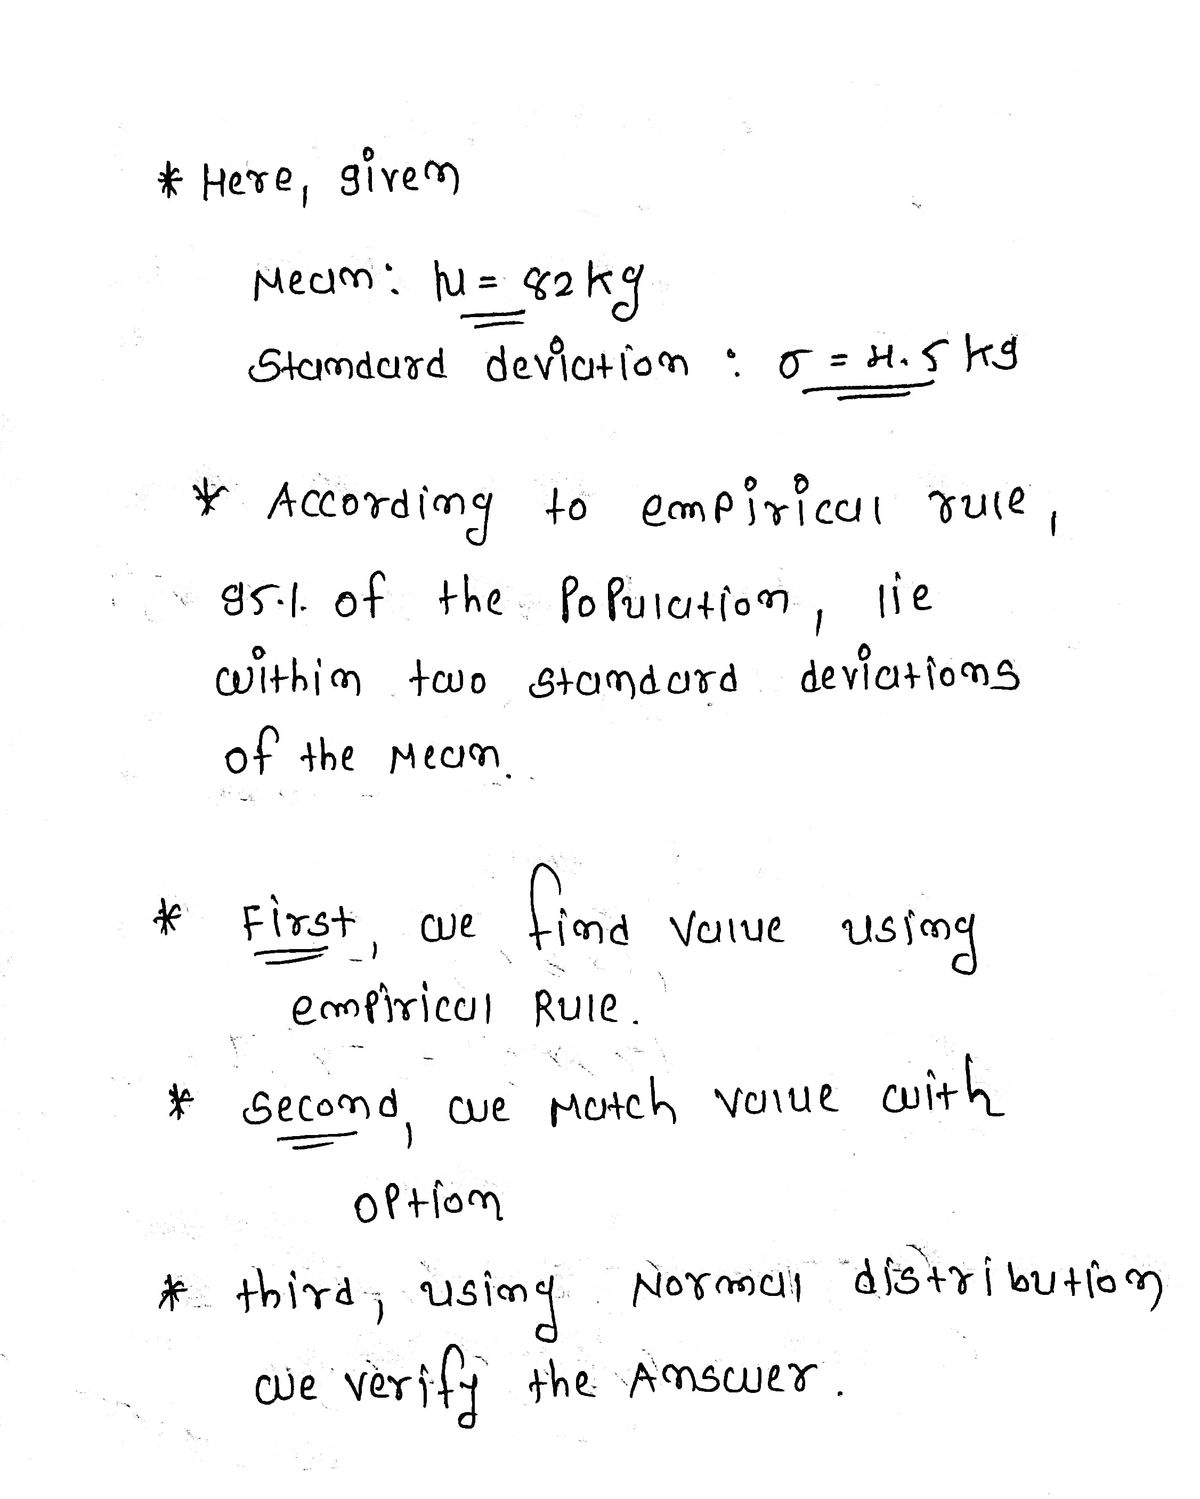 * Here, given
Mean: μ = 82 kg
Standard deviation : σ = 4.5 kg
* According to empirical rule,
95% of the Population, lie
within two standard deviations
of the Mean.
* First, we find value using
empirical Rule.
* Second, we Match value with
option
* third, using Normal distribution
we verify the Answer.